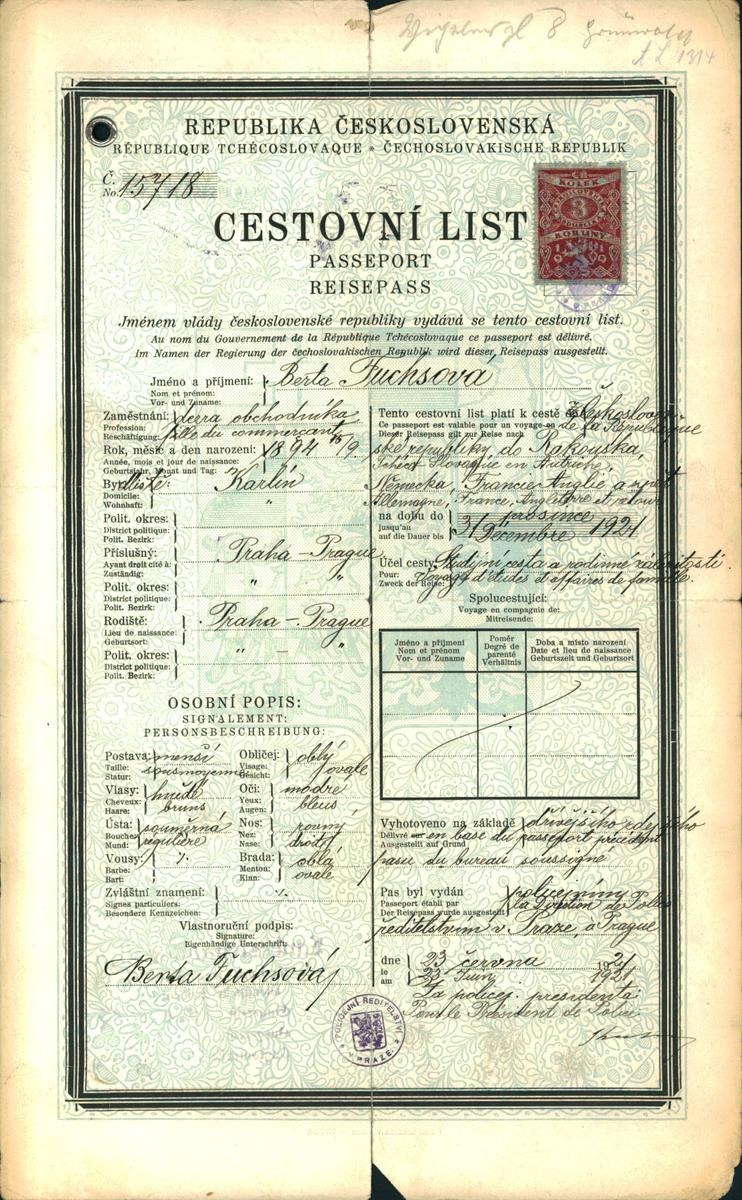 8
A L 1314
REPUBLIKA ČESKOSLOVENSKÁ
RÉPUBLIQUE TCHÉCOSLOVAQUE * ČECHOSLOVAKISCHE REPUBLIK
Č.
No. 15718
KOLEK
3
KORUNY
1919
CESTOVNÍ LIST
PASSEPORT
REISEPASS
Jménem vlády československé republiky vydává se tento cestovní list.
Au nom du Gouvernement de la République Tchécoslovaque ce passeport est délivré.
Im Namen der Regierung der čechoslovakischen Republik wird dieser Reisepass ausgestellt.
Jméno a příjmení: Berta Fuchsová
Nom et prénom:
Vor- und Zuname:
Zaměstnání: dcera obchodníka
Profession: fille du commerçant
Beschäftigung:
Rok, měsíc a den narození: 1894 15/9
Année, mois et jour de naissance:
Geburtsjahr, Monat und Tag:
Bydliště: Karlín
Domicile: "
Wohnhaft:
Polit. okres:
District politique:
Polit. Bezirk:
Příslušný: Praha - Prague
Ayant droit cité à: " "
Zuständig:
Polit. okres:
District politique:
Polit. Bezirk:
Rodiště: Praha - Prague
Lieu de naissance: " - "
Geburtsort:
Polit. okres:
District politique:
Polit. Bezirk:
OSOBNÍ POPIS:
SIGNALEMENT:
PERSONSBESCHREIBUNG:
Postava: menší
Taille: sousmoyenne
Statur:
Obličej: oblý
Visage: ovale
Gesicht:
Vlasy: hnědé
Cheveux: bruns
Haare:
Oči: modré
Yeux: bleus
Augen:
Ústa: souměrná
Bouche: régulière
Mund:
Nos: rovný
Nez: droit
Nase:
Vousy: ⁒
Barbe:
Bart:
Brada: oblá
Menton: ovale
Kinn:
Zvláštní znamení: ⁒
Signes particuliers:
Besondere Kennzeichen:
Vlastnoruční podpis:
Signature:
Eigenhändige Unterschrift:
Berta Fuchsová
Tento cestovní list platí k cestě do Českosloven-
Ce passeport est valable pour un voyage en de la République
Dieser Reisepass gilt zur Reise nach
ské republiky, do Rakouska,
Tchéco Slovaque en Autriche,
Německa, Francie Anglie, a zpět
Allemagne, France, Angleterre et retour
na dobu do 31 prosince 1921
jusqu'au Décembre
auf die Dauer bis
Účel cesty: Studijní cesta a rodinné záležitosti.
Pour: Voyage d'études et affaires de famille.
Zweck der Reise:
Spolucestující:
Voyage en compagnie de:
Mitreisende:
Jméno a příjmení
Nom et prénom
Vor- und Zuname
Poměr
Degré de parenté
Verhältnis
Doba a místo narození
Date et lieu de naissance
Geburtszeit und Geburtsort
Vyhotoveno na základě dřívějšího zdejšího
Délivré sur en base du passeport précédent
Ausgestellt auf Grund
pasu du bureau soussigné
Pas byl vydán policejním
Passeport établi par la Direction de Police
Der Reisepass wurde ausgestellt
ředitelstvím v Praze, à Prague
dne 23 června 1921
le 23 Juin 1921
am
Za policej. presidenta:
Pour le Président de Police
POLICEJNÍ ŘEDITELSTVÍ
V PRAZE.